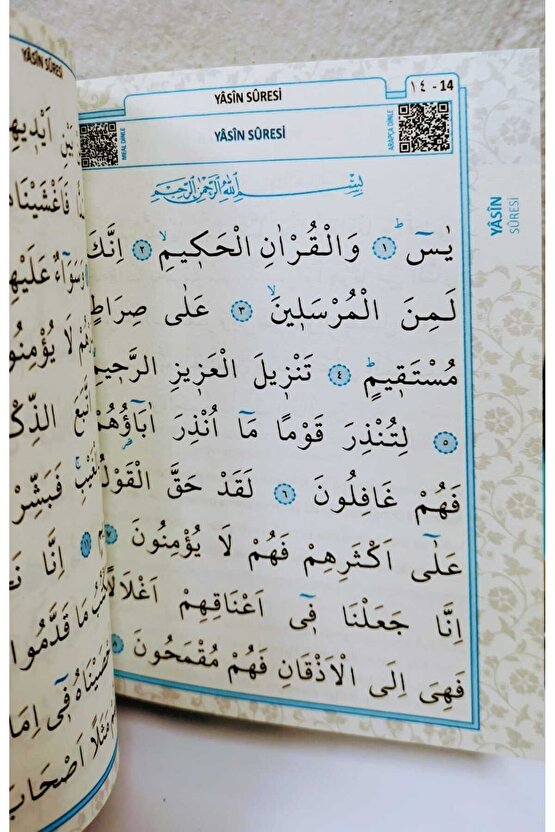 YÂSÎN SÛRESİ
١٤ - 14
YÂSÎN SÛRESİ
MEAL DİNLE
ARAPÇA DİNLE
بِسْمِ اللّٰهِ الرَّحْمٰنِ الرَّحٖيمِ
يٰسٓ ۚ ﴿١﴾ وَالْقُرْاٰنِ الْحَكٖيمِۙ ﴿٢﴾ اِنَّكَ
لَمِنَ الْمُرْسَلٖينَۙ ﴿٣﴾ عَلٰى صِرَاطٍ
مُسْتَقٖيمٍؕ ﴿٤﴾ تَنْزٖيلَ الْعَزٖيزِ الرَّحٖيمِۙ
﴿٥﴾ لِتُنْذِرَ قَوْمًا مَٓا اُنْذِرَ اٰبَٓاؤُ۬هُمْ
فَهُمْ غَافِلُونَ ﴿٦﴾ لَقَدْ حَقَّ الْقَوْلُ
عَلٰٓى اَكْثَرِهِمْ فَهُمْ لَا يُؤْمِنُونَ ﴿٧﴾
اِنَّا جَعَلْنَا فٖٓى اَعْنَاقِهِمْ اَغْلَالًا
فَهِىَ اِلَى الْاَذْقَانِ فَهُمْ مُقْمَحُونَ ﴿٨﴾
YÂSÎN
SÛRESİ
YÂSÎN SÛRESİ
بَيْنِ اَيْدٖيهِ
فَاَغْشَيْنَا
وَسَوَٓاءٌ عَلَيْهِ
لَا يُؤْمِنُو
اتَّبَعَ الذِّكْ
فَبَشِّرْ
اِنَّا نَ
مَا قَدَّمُوا
فٖٓى اِمَا
مَثَلًا اَصْحَابَ